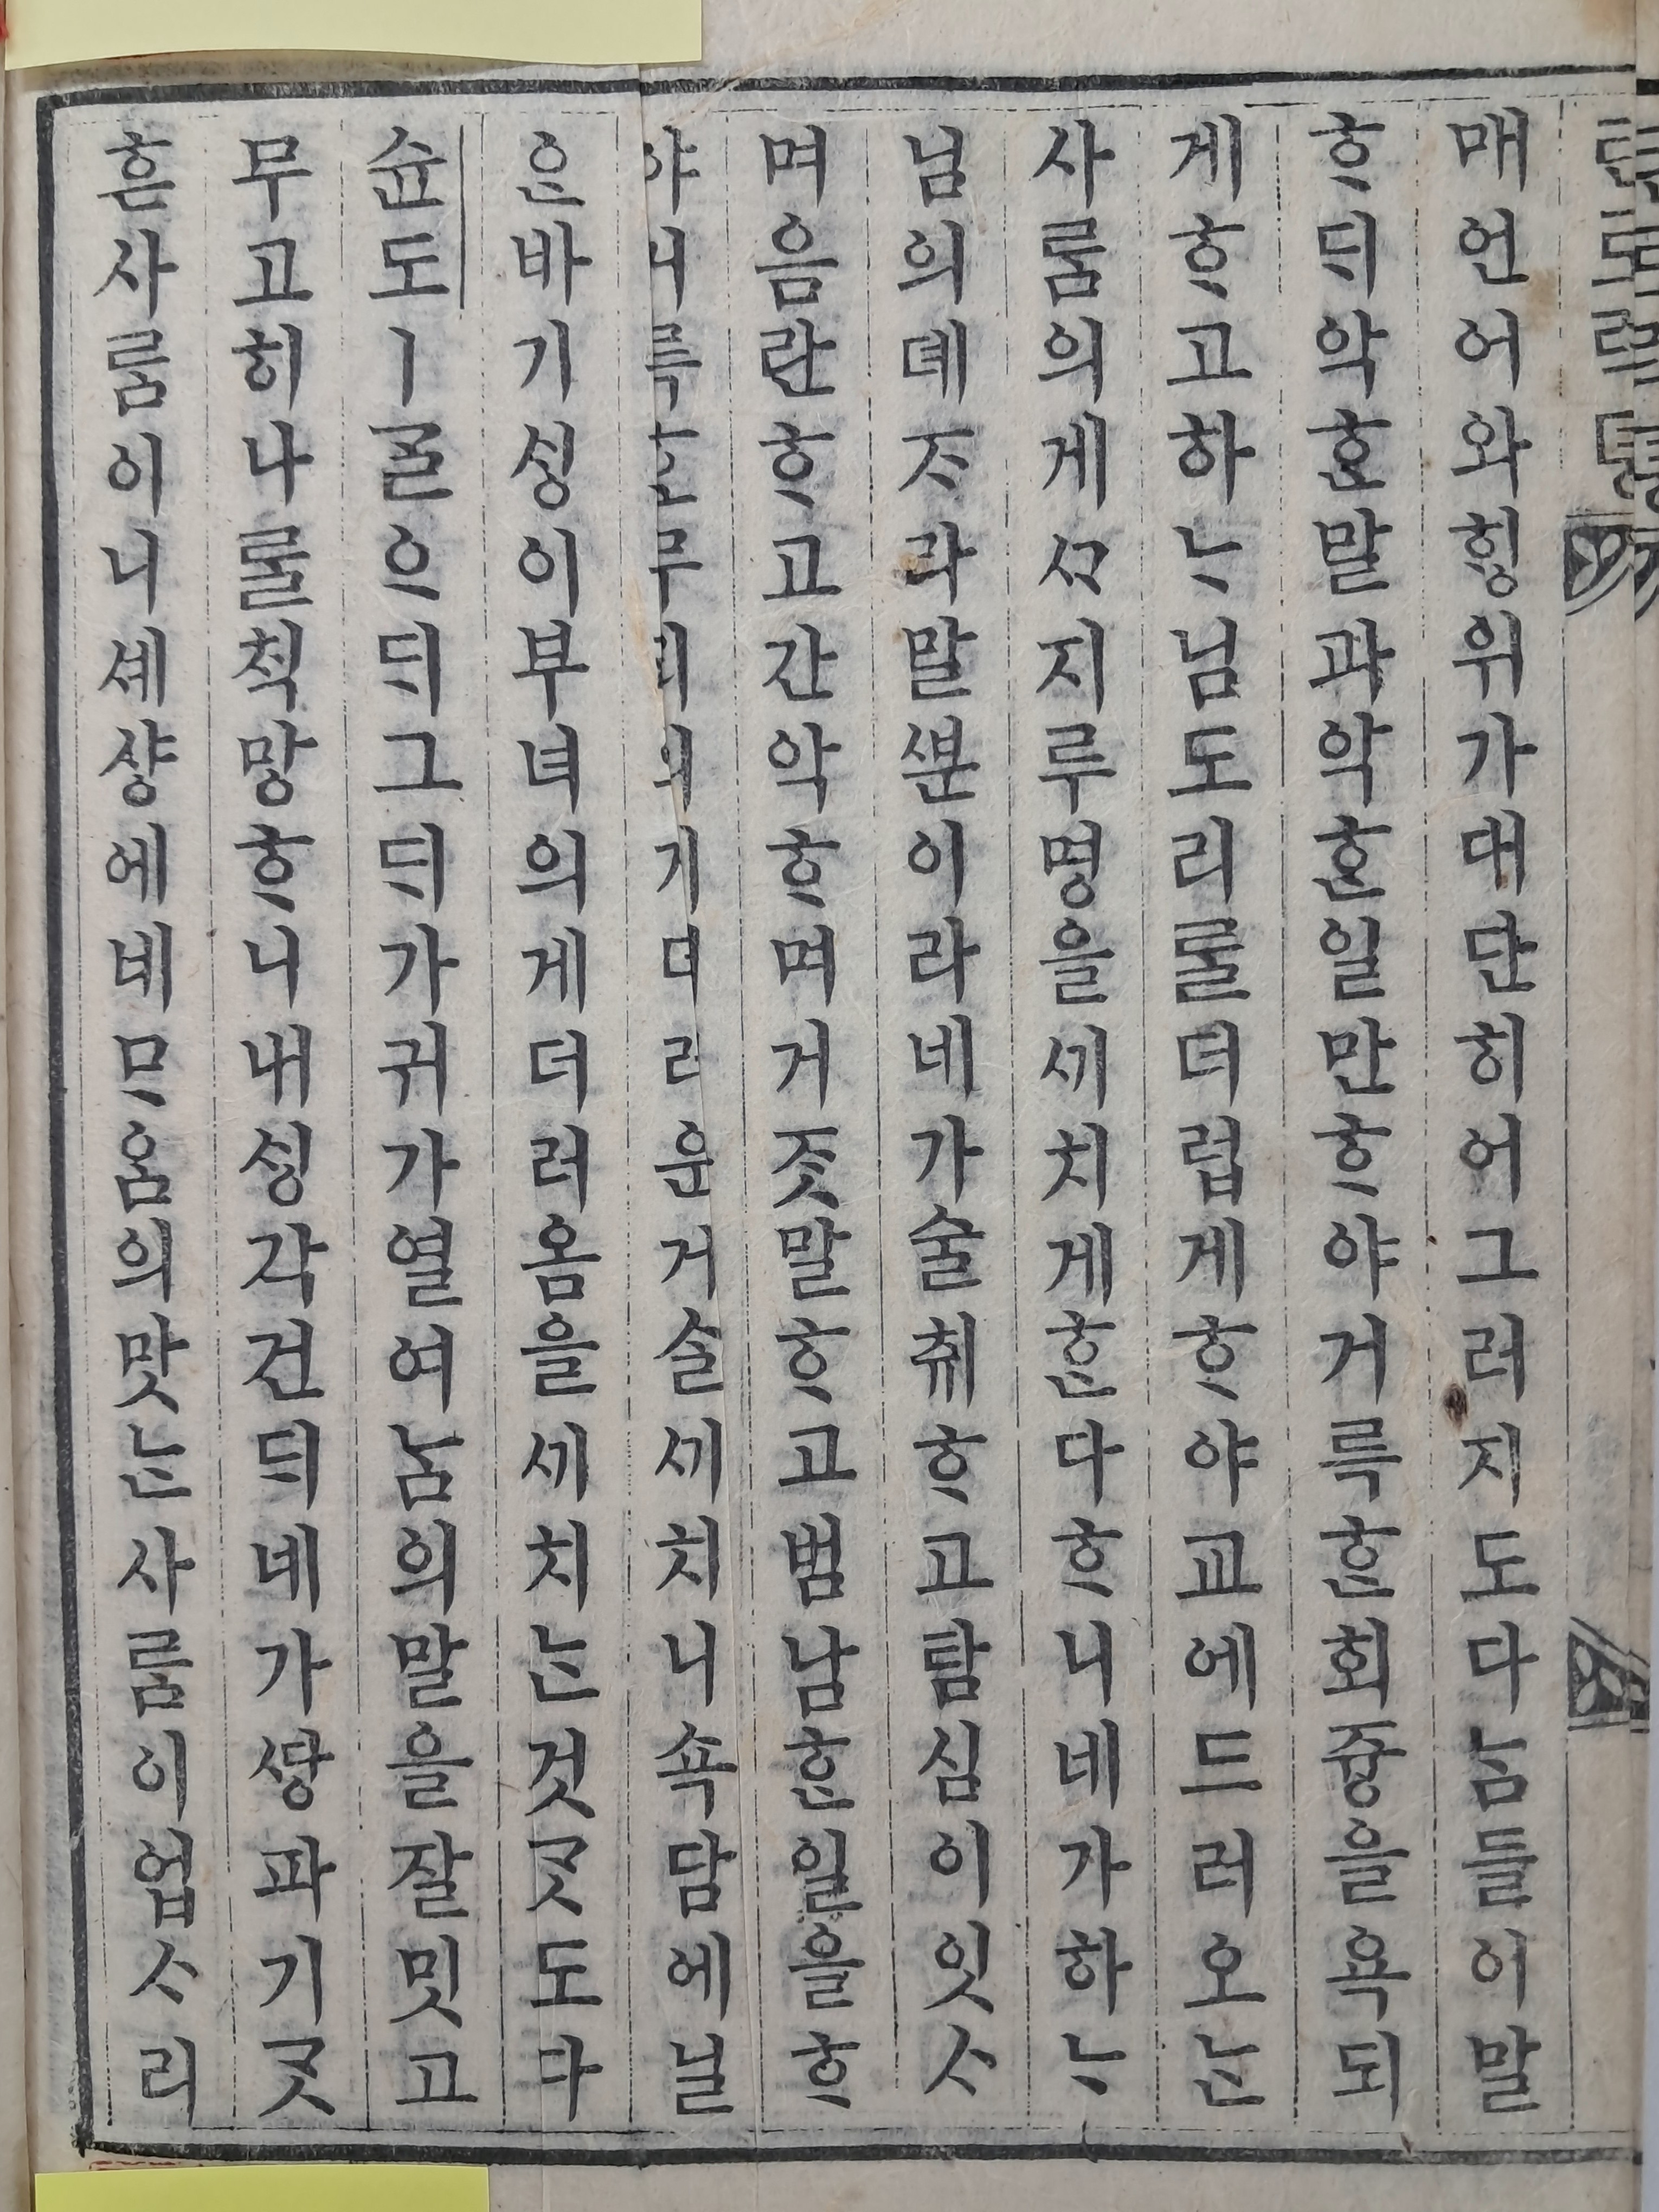 매언어와ᄒᆡᆼ위가대단히어그러지도다ᄂᆞᆷ들이말
ᄒᆞ듸악ᄒᆞᆫ말과악ᄒᆞᆫ일만ᄒᆞ야거륵ᄒᆞᆫ회즁을욕되
게ᄒᆞ고하ᄂᆞ님도리ᄅᆞᆯ더럽게ᄒᆞ야교에드러오ᄂᆞᆫ
사ᄅᆞᆷ의게ᄭᆞ지루명을ᄭᅵ치게ᄒᆞᆫ다ᄒᆞ니네가하ᄂᆞ
님의뎨ᄌᆞ라말ᄲᅮᆫ이라네가술취ᄒᆞ고탐심이잇ᄉᆞ
며음란ᄒᆞ고간악ᄒᆞ며거ᄌᆞᆺ말ᄒᆞ고범남ᄒᆞᆫ일을ᄒᆞ
야거륵ᄒᆞᆫ무리의게더러운거슬ᄭᅵ치니쇽담에닐
은바기ᄉᆡᆼ이부녀의게더러옴을ᄭᅵ치ᄂᆞᆫ것ᄀᆞᆺ도다
슌도ㅣᄀᆞᆯᄋᆞ듸그듸가귀가열여ᄂᆞᆷ의말을잘밋고
무고히나ᄅᆞᆯᄎᆡᆨ망ᄒᆞ니내ᄉᆡᆼ각건듸네가ᄯᅡᆼ파기ᄀᆞᆺ
흔사ᄅᆞᆷ이니셰샹에네ᄆᆞᄋᆞᆷ의맛ᄂᆞᆫ사ᄅᆞᆷ이업ᄉᆞ리